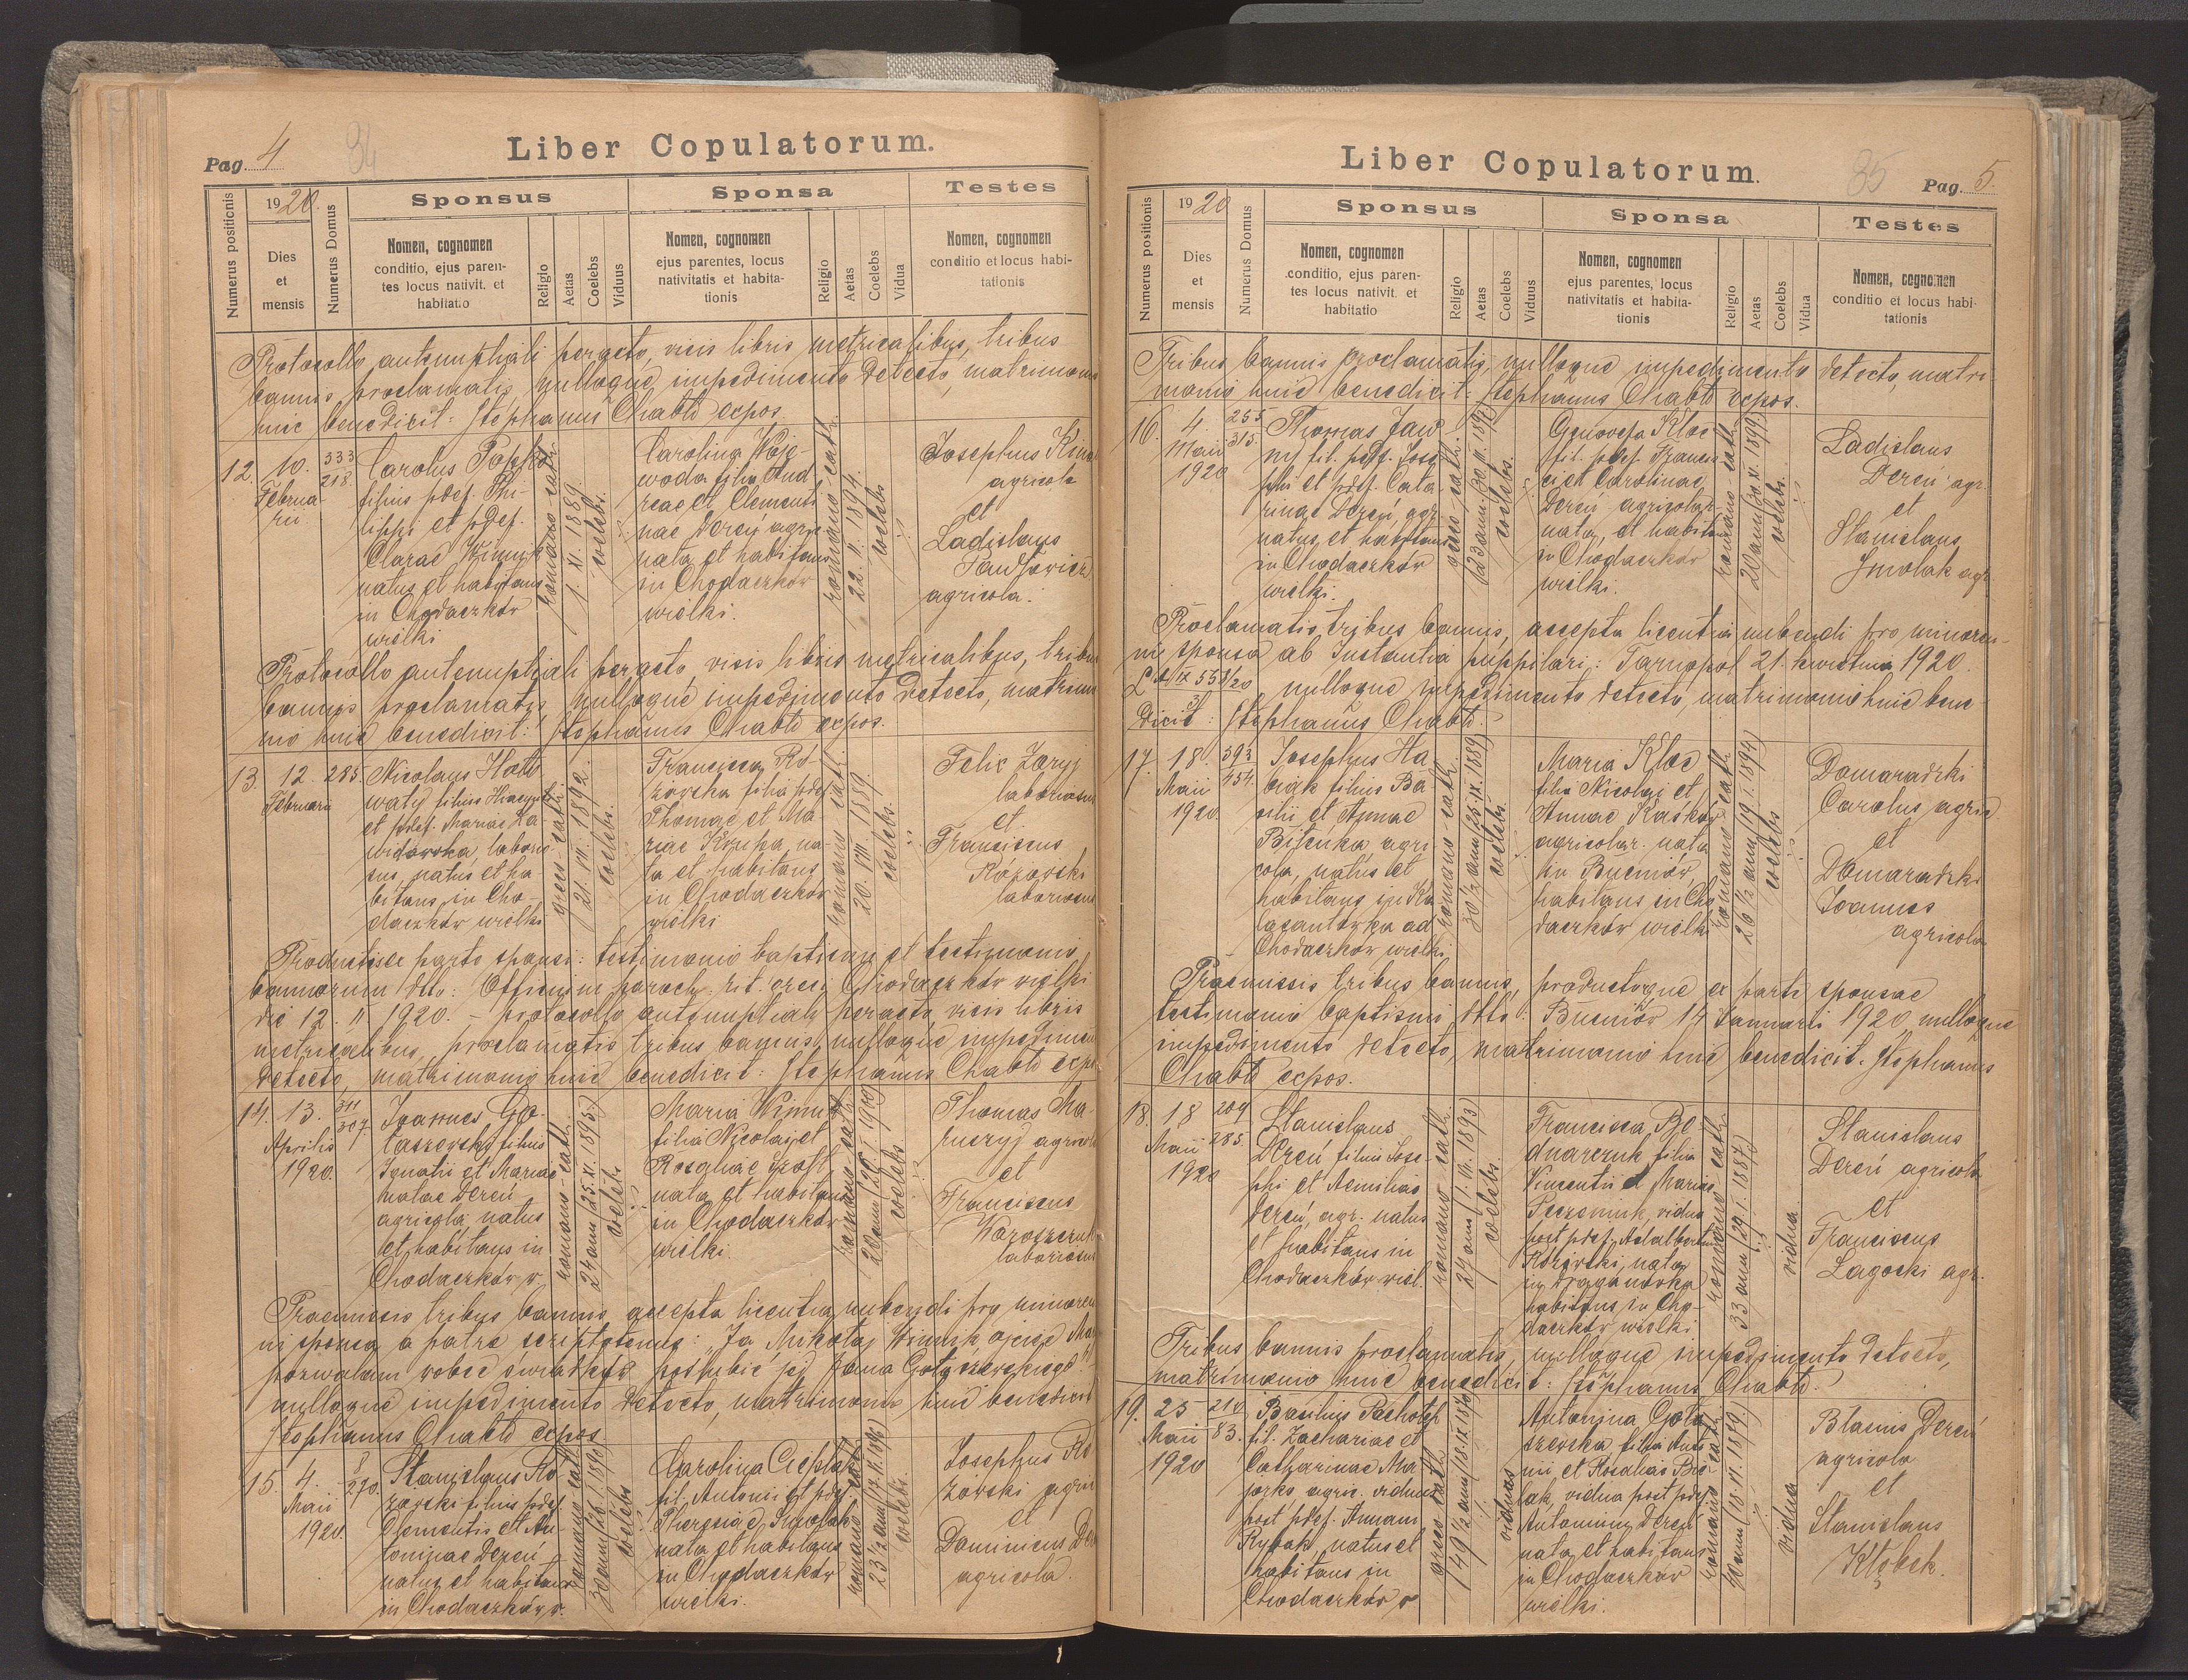 Pag. 4
34
Liber Copulatorum.
Numerus positionis
1920.
Dies
et
mensis
Numerus Domus
Sponsus
Nomen, cognomen
conditio, ejus paren-
tes locus nativit. et
habitatio
Religio
Aetas
Coelebs
Viduus
Sponsa
Nomen, cognomen
ejus parentes, locus
nativitatis et habita-
tionis
Religio
Aetas
Coelebs
Vidua
Testes
Nomen, cognomen
conditio et locus habi-
tationis
Protocollo antenuptiali peracto, visis libris metricalibus, tribus
bannis proclamatis, nulloque impedimento detecto, matrimonio
huic benedicit: Stephanus Chabło expos.
12.
10.
Februa-
rii
333
218.
Carolus Popko
filius pdef. Phi-
lippi et pdef.
Clarae Kimnyk
natus et habitans
in Chodaczków
wielki
romano-cath.
1. XI. 1889.
coelebs.
Carolina Woje-
woda filia And
reae et Clementi
nae Dereń agric
nata et habitans
in Chodaczków
wielki.
romano-cath.
22. II. 1894.
coelebs
Josephus
agricola
et
Ladislaus
agricola.
Protocollo antenuptiali peracto, visis libris metricalibus, tribus
bannis proclamatis, nulloque impedimento detecto, matrimo
nio huic benedicit: Stephanus Chabło expos.
13.
12.
Februarii
285.
Nicolaus Hoło
waty filius Hiacynthi
et pdef. Mariae Za
widowska, laborio
sus, natus et ha-
bitans in Cho-
daczków wielki
graeco-cath.
21. VII. 1892.
coelebs
Francisca Ró-
żowska filia pdef.
Thomae et Ma
riae Krupa na
ta et habitans
in Chodaczków
wielki
romano cath.
20. VII. 1889.
coelebs
Felix Zaryj
laboriosus
et
Franciscus
Różowski
laboriosus
Productisce parte sponsi: testimonio baptismi et testimonio
bannorum dtto: Officium paroch. rit. graeci Chodaczków wielki
die 12. II 1920. - protocollo antenuptiali peracto, visis libris
metricalibus, proclamatis tribus bannis, nulloque impedimen
detecto, matrimonio huic benedicit: Stephanus Chabło expos
14.
13.
Aprilis
1920.
311
307
Joannes Go-
łaszewski filius
Ignatii et Mariae
natae Dereń
agricola natus
et habitans in
Chodaczków w.
romano-cath.
24 ann (25. XI. 1895.)
coelebs
Maria Kimnyk
filia Nicolai et
Rosaliae
nata et habitans
in Chodaczków
wielki.
romano cath.
coelebs
Thomas Ma-
agricola
et
Franciscus
laboriosus
Praemissis tribus bannis accepta licentia nubendi pro minoren
ni sponsa a patre scripto tenus: "Ja Mikołaj Kimnyk ojciec Ma
pozwalam wobec świadków poślubić jej Jana Gołaszewskiego"
nulloque impedimento detecto, matrimonio huic benedicit
Stephanus Chabło expos.
15.
4.
Maii
1920.
8
270.
Stanislaus Ró
żowski filius pdef.
Clementis et An-
toninae Dereń
natus et habitans
in Chodaczków w.
romano cath.
coelebs
Carolina Cieplak
fil. Antonii et pdef.
Theresiae Smolak
nata et habitans
in Chodaczków
wielki.
romano cath
coelebs.
Josephus Ró
żowski agric
et
Dominicus
agricola.
Liber Copulatorum.
35
Pag. 5.
Numerus positionis
1920
Dies
et
mensis
Numerus Domus
Sponsus
Nomen, cognomen
conditio, ejus paren-
tes locus nativit. et
habitatio
Religio
Aetas
Coelebs
Viduus
Sponsa
Nomen, cognomen
ejus parentes, locus
nativitatis et habita-
tionis
Religio
Aetas
Coelebs
Vidua
Testes
Nomen, cognomen
conditio et locus habi-
tationis
Tribus bannis proclamatis, nulloque impedimento detecto, matri
monio huic benedicit: Stephanus Chabło expos.
16.
4.
Maii
1920
255
315.
Thomas Jaw
nyj fil. pdef. Jose
phi et pdef. Cata
rinae Dereń, agr.
natus et habitans
in Chodaczków
wielki.
graeco-cath.
coelebs.
Genovefa Kloc
fil. pdef. Francis
ci et Carolinae
Dereń agricolar.
nata, et habitans
in Chodaczków
wielki.
romano-cath.
20 ann (30. XI. 1899)
coelebs.
Ladislaus
Dereń agr.
et
Stanislaus
Smolak agr
Proclamatis tribus bannis, accepta licentia nubendi pro minoren-
ni sponsa ab Instantia puppilari: Tarnopol 21. kwietnia 1920.
nulloque impedimento detecto, matrimonio huic bene-
dicit: Stephanus Chabło.
17.
18.
Maii
1920.
393
454.
Josephus Ha
filius Ba
silii et Annae
agri
cola, natus et
habitans in Ka
łasantówka ad
Chodaczków wielki
romano-cath.
30 1/2 ann (25. IX. 1889)
coelebs
Maria Kloc
filia Nicolai et
Annae
agricolar. nata
in Bucniów,
habitans in Cho
daczków wielki
romano-cath.
26 1/2 ann (19. I. 1894)
coelebs
Domaradzki
Carolus agric
et
Domaradzki
Joannes
agricola
Praemissis tribus bannis, productoque ex parte sponsae
testimonio baptismi dtto: Bucniów 14 Januarii 1920, nulloque
impedimento detecto, matrimonio huic benedicit. Stephanus
Chabło expos.
18.
18
Maii
1920
209
285.
Stanislaus
Dereń filius Jose-
phi et Aemiliae
Dereń, agr. natus
et habitans in
Chodaczków wiel.
romano-cath.
coelebs.
Francisca Bo
dnarczuk filia
Vincentii et Mariae
vidua
post pdef. Adalbertum
Różowski, nata
in Draganówka
habitans in Cho-
daczków wielki.
romano cath.
33 ann (29. I. 1887)
vidua
Stanislaus
Dereń agricola
et
Franciscus
Zagocki agr.
Tribus bannis proclamatis, nulloque impedimento detecto,
matrimonio huic benedicit: Stephanus Chabło.
19.
25
Maii
1920
210
83.
Basilius
fil. Zachariae et
Catharinae Ma
jorko agric. viduus
post pdef. Annam
Rybak, natus et
habitans in
Chodaczków w
graeco cath.
viduus
Antonina Goła
szewska filia Anto
nii et Rosaliae
vidua post pdef.
Antonium Dereń
nata et habitans
in Chodaczków
wielki.
romano cath.
vidua
Blasius Dereń
agricola
et
Stanislaus
Kłębek.